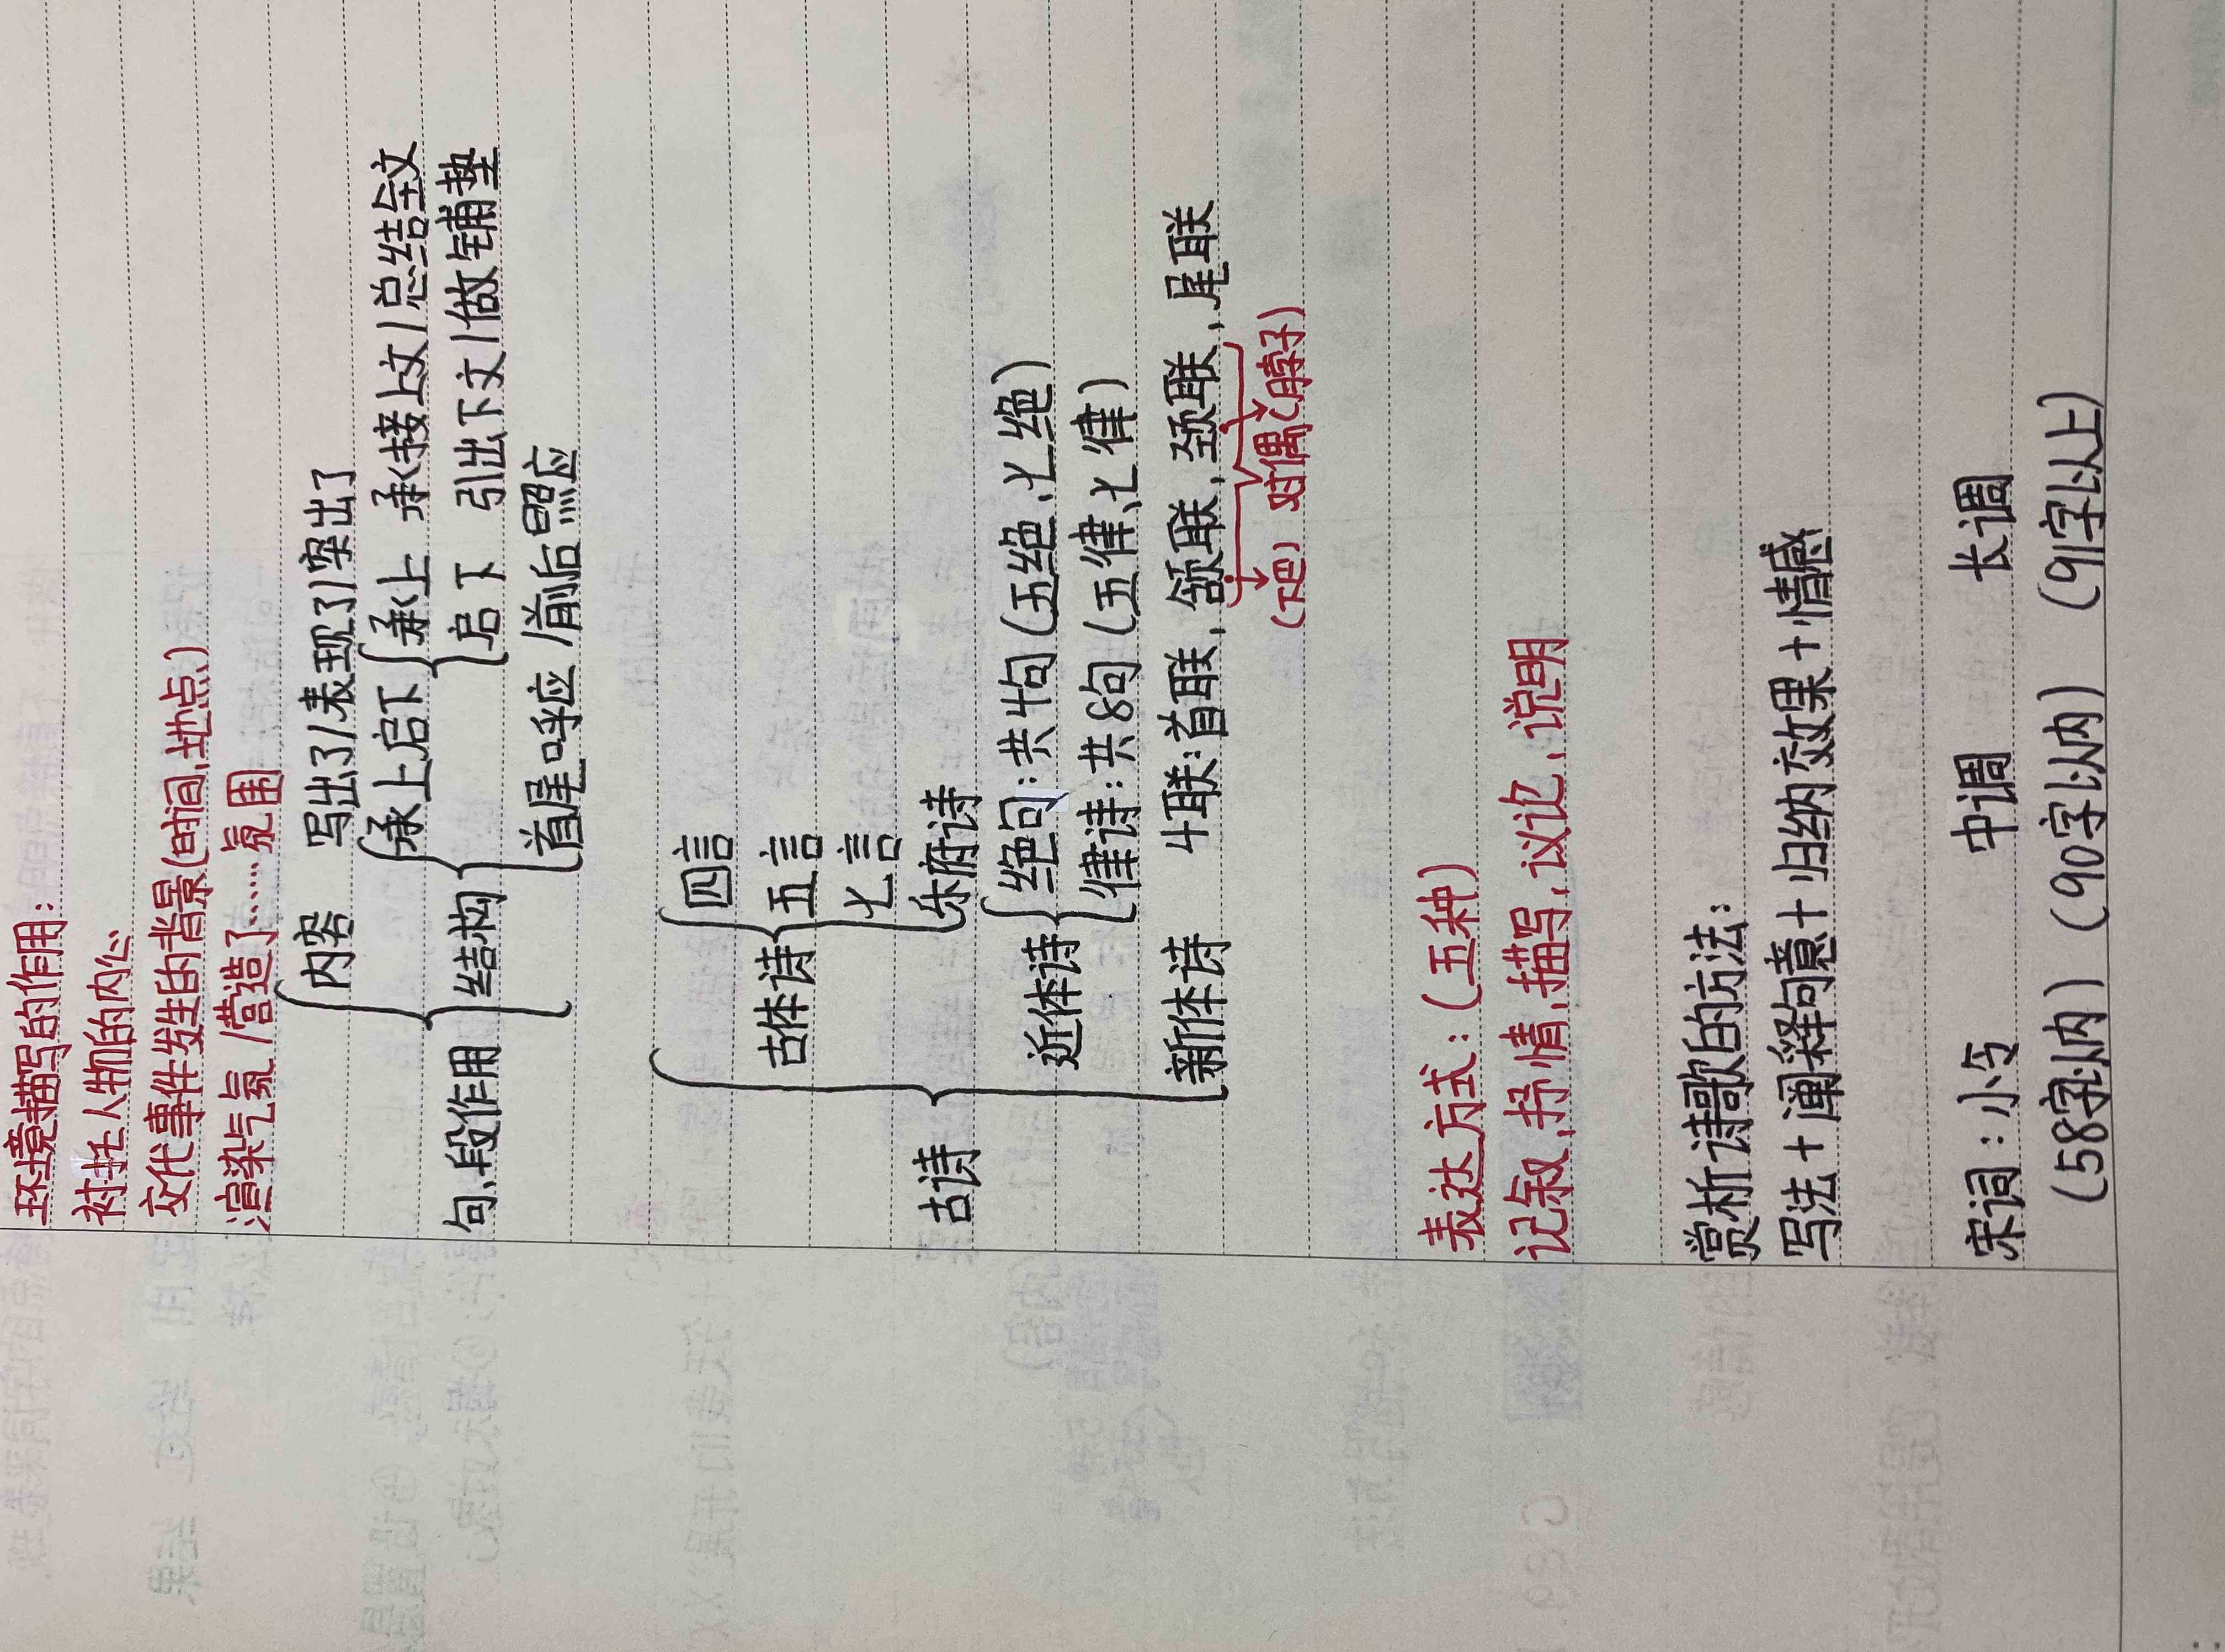 环境描写的作用:
衬托人物的内心
交代事件发生的背景(时间,地点)
渲染气氛/营造了……氛围
句,段作用
内容 写出了/表现了/突出了
结构
承上启下
承上 承接上文/总结全文
启下 引出下文/做铺垫
首尾呼应/前后照应
古诗
古体诗
四言
五言
七言
乐府诗
近体诗
绝句:共4句(五绝,七绝)
律诗:共8句(五律,七律)
新体诗 4联:首联,颔联,颈联,尾联
(下巴) 对偶 (脖子)
表达方式:(五种)
记叙,抒情,描写,议论,说明
赏析诗歌的方法:
写法+阐释句意+归纳效果+情感
宋词:小令 中调 长调
(58字以内) (90字以内) (91字以上)